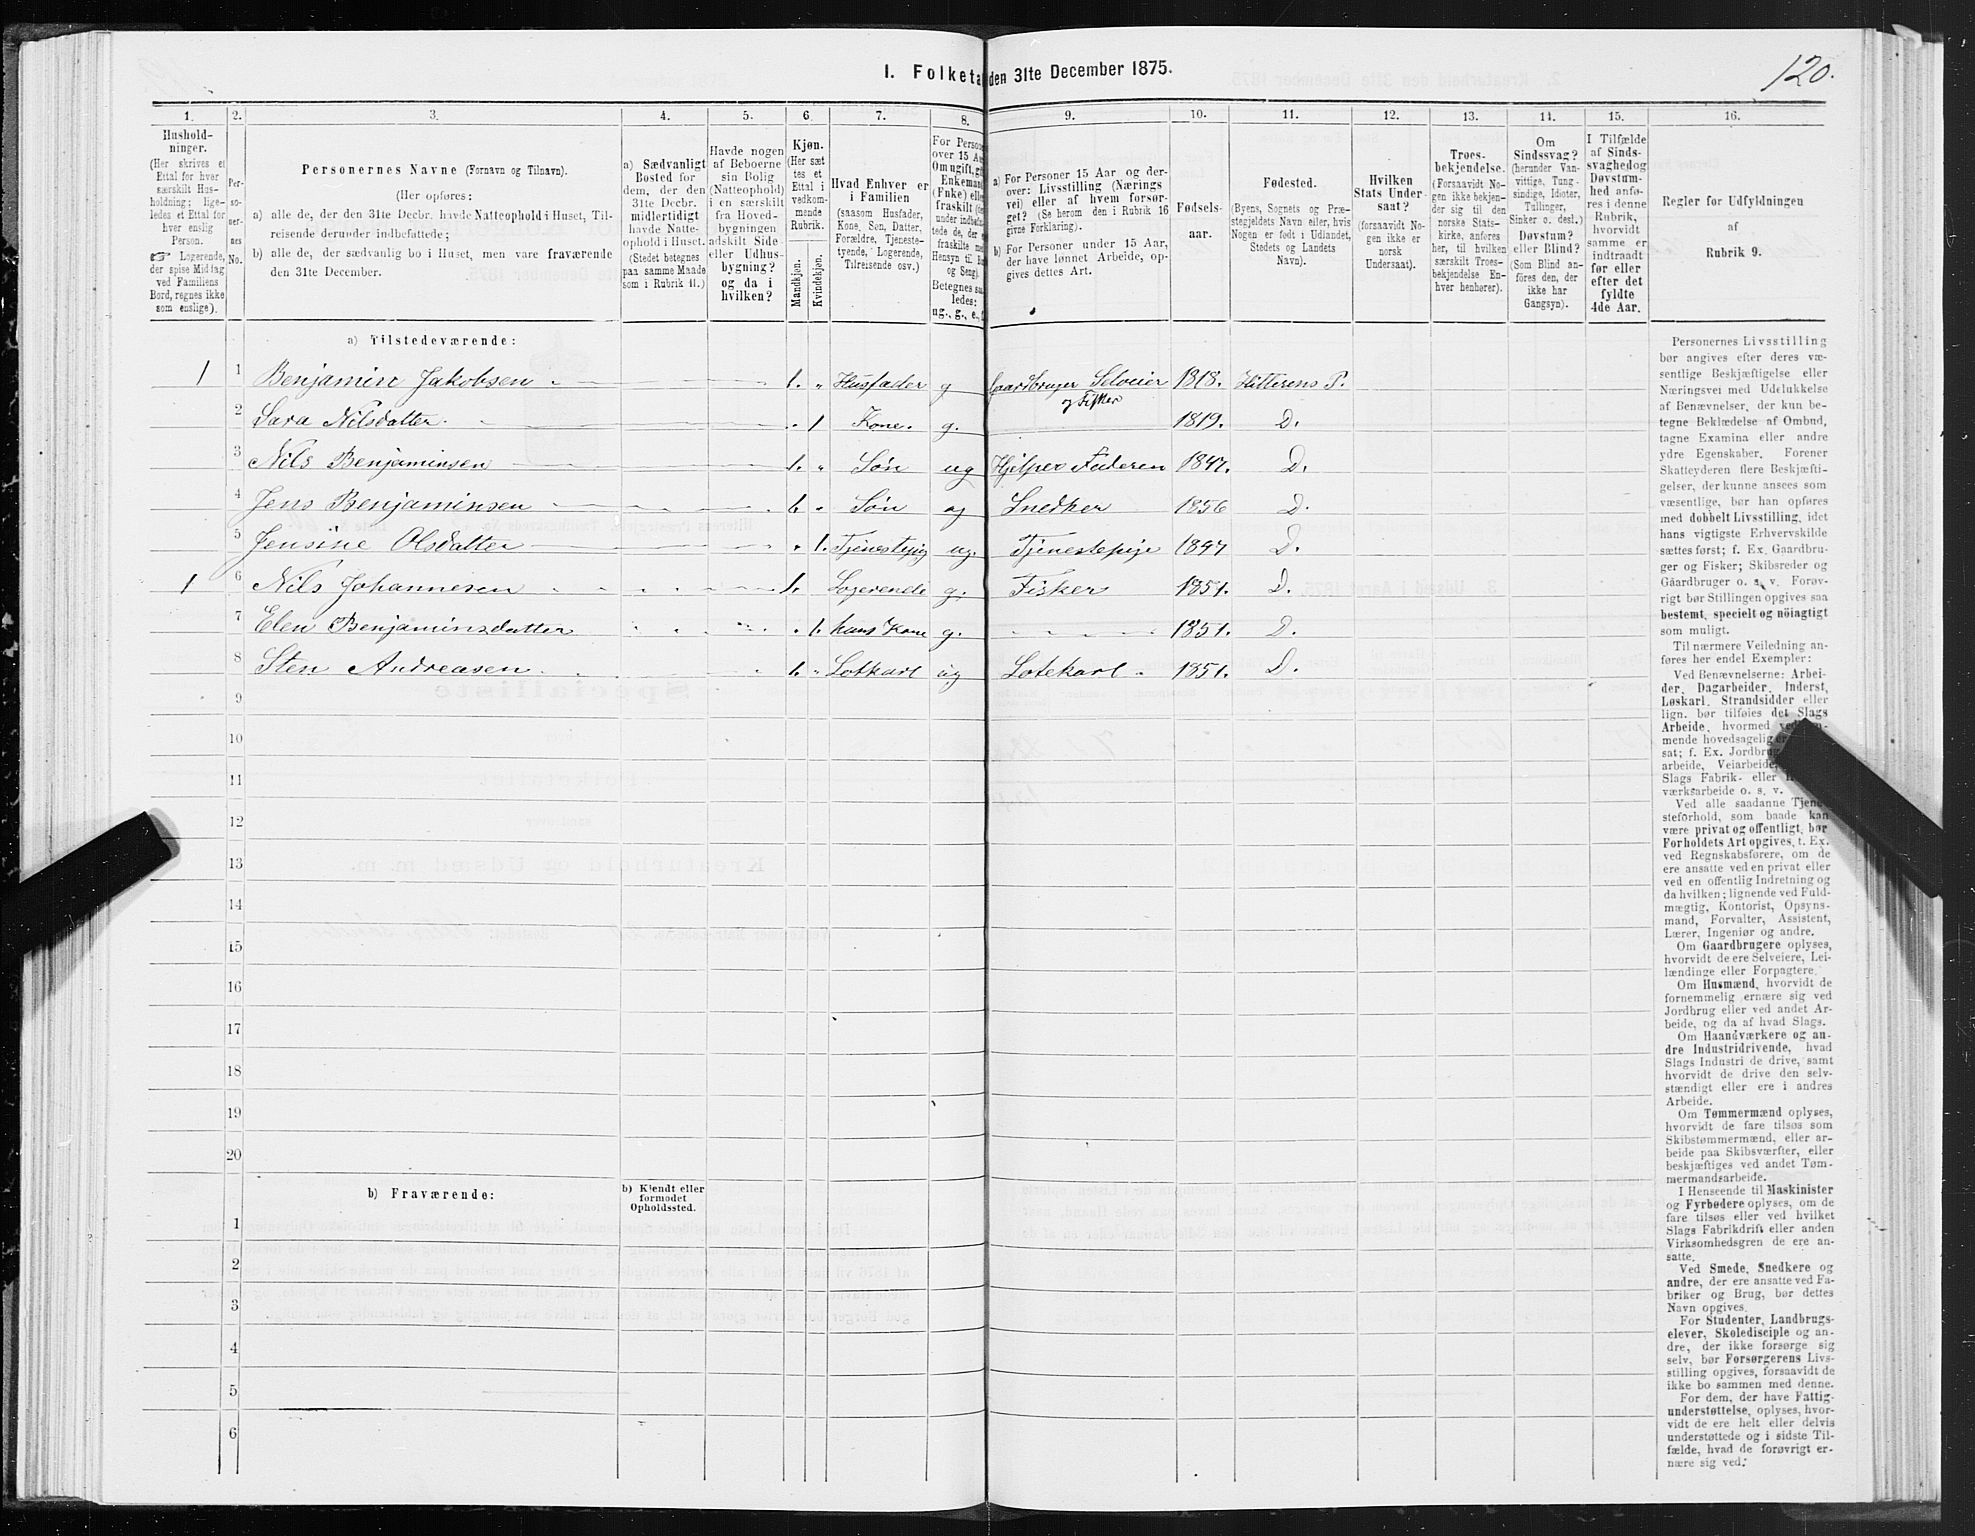 I. Folketa den 31te December 1875.
120.
1. 2. 3. 4. 5. 6. 7. 8. 9. 10. 11. 12. 13. 14. 15. 16.
Hushold-
ninger.
(Her skrives et
Ettal for hver
særskilt Hus-
holdning; lige-
ledes et Ettal for
hver enslig
Person.
☞ Logerende,
der spise Middag
ved Familiens
Bord, regnes ikke
som enslige).
Per-
so-
ner-
nes
No.
Personernes Navne (Fornavn og Tilnavn).
(Her opføres:
a) alle de, der den 31te Decbr. havde Natteophold i Huset, Til-
reisende derunder indbefattede;
b) alle de, der sædvanlig bo i Huset, men vare fraværende
den 31te December.
a) Sædvanligt
Bosted for
dem, der den
31te Decbr.
midlertidigt
havde Natte-
ophold i Huset.
(Stedet betegnes
paa samme Maade
som i Rubrik 11.)
Havde nogen
af Beboerne
sin Bolig
(Natteophold)
i en særskilt
fra Hoved-
bygningen
adskilt Side-
eller Udhus-
bygning?
og da i
hvilken?
Kjøn.
(Her sæt
tes et
Ettal i
vedkom-
mende
Rubrik.
Mandkjøn.
Kvindekjøn.
Hvad Enhver er
i Familien
(saasom Husfader,
Kone, Søn, Datter,
Forældre, Tjeneste-
tyende, Logerende,
Tilreisende osv.)
For Person
over 15 Aa
Om ugift, gi
Enkeman
(Enke) elle
fraskilt (de
under indbefa
tede de, der e
fraskilte me
Hensyn til B
og Seng).
Betegnes saa
ledes:
ug., g., e.,
a) For Personer 15 Aar og der-
over: Livsstilling (Nærings
vei) eller af hvem forsør-
get? (Se herom den i Rubrik 16
givne Forklaring).
b) For Personer under 15 Aar,
der have lønnet Arbeide, op-
gives dettes Art.
Fødsels-
aar.
Fødested.
(Byens, Sognets og Præ-
stegjeldets Navn eller, hvis
Nogen er født i Udlandet,
Stedets og Landets
Navn).
Hvilken
Stats Under-
saat?
(forsaavidt No-
gen ikke er
norsk
Undersaat).
Troes-
bekjendelse.
(Forsaavidt No-
gen ikke bekjen-
der sig til den
norske Stats-
kirke, anføres
her, til hvilken
særskilt Troes-
bekjendelse En-
hver henhører).
Om
Sindssvag?
(herunder Van-
vittige, Tung-
sindige, Idioter,
Tullinger,
Sinker o. desl.)
Døvstum?
eller Blind?
(Som Blind an-
føres den, der
ikke har
Gangsyn).
I Tilfælde
af Sinds-
svaghed og
Døvstum-
hed anfø-
res i denne
Rubrik,
hvorvidt
samme er
indtraadt
før eller
efter det
fyldte
4de Aar.
Regler for Udfyldningen
af
Rubrik 9.
a) Tilstedeværende:
1 1 Benjamin Jakobsen 1. „ Husfader g Gaardbruger Selveier 1818. Hitterens P.
og Fisker
2 Sara Nilsdatter. „ 1 Kone. g. 1819. D.
3 Nils Benjaminsen 1. „ Søn ug Hjelper Faderen 1847. D.
4 Jens Benjaminsen 1. „ Søn ug Snedker 1856 D.
5 Jensine Olsdatter „ 1. Tjenestepig ug. Tjenestepige 1847 D.
1 6 Nils Johannesen 1. Logerende g. Fisker 1851. D.
7 Elen Benjaminsdatter „ 1. hans Kone g. 1851. D.
8 Sten Andreasen 1. „ Lotkarl ug Lotekarl 1851. D.
9
10
11
12
13
14
15
16
17
18
19
20
b) Fraværende:
b) Kjendt eller
formodet
Opholdssted.
1
2
3
4
5
6
Personernes Livsstilling
bør angives efter deres væ-
sentlige Beskjæftigelse eller
Næringsvei med Udelukkelse
af Benævnelser, der kun be-
tegne Beklædelse af Ombud,
tagne Examina eller andre
ydre Egenskaber. Forener
Skatteyderen flere Beskjæfti-
gelser, der kunne ansees som
væsentlige, bør han opføres
med dobbelt Livsstilling, idet
hans vigtigste Erhvervskilde
sættes først; f. Ex. Gaardbru-
ger og Fisker; Skibsreder og
Gaardbruger o. s. v. Forøv-
rigt bør Stillingen opgives saa
bestemt, specielt og nöiagtigt
som muligt.
Til nærmere Veiledning an-
føres her endel Exempler:
Ved Benævnelserne: Arbei-
der, Dagarbeider, Inderst,
Løskarl, Strandsidder eller
lign. bør tilføies det Slags
Arbeide, hvormed ved m-
mende hovedsagelig er
sat; f. Ex. Jordbrug
arbeide, Veiarbeide,
Slags Fabrik- eller
værksarbeide o. s. v.
Ved alle saadanne Tjene-
steforhold, som baade kan
være privat og offentligt, bør
Forholdets Art opgives, f. Ex.
ved Regnskabsførere, om de
ere ansatte ved en privat eller
ved en offentlig Indretning og
da hvilken; lignende ved Fuld-
mægtig, Kontorist, Opsyns-
mand, Forvalter, Assistent,
Lærer, Ingeniør og andre.
Om Gaardbrugere oplyses,
hvorvidt de ere Selveiere, Lei-
lændinge eller Forpagtere.
Om Husmænd, hvorvidt de
fornemmelig ernære sig ved
Jordbrug eller ved andet Ar-
beide, og da af hvad Slags.
Om Haandværkere og an-
dre Industridrivende, hvad
Slags Industri de drive, samt
hvorvidt de drive den selv-
stændigt eller ere i andres
Arbeide.
Om Tømmermænd oplyses,
hvorvidt de fare tilsøs som
Skibstømmermænd, eller ar-
beide paa Skibsværfter, eller
beskjæftiges ved andet Tøm-
mermandsarbeide.
I Henseende til Maskinister
og Fyrbødere oplyses, om de
fare tilsøs eller ved hvilket
Slags Fabrikdrift eller anden
Virksomhedsgren de ere an-
satte.
Ved Smede, Snedkere og
andre, der ere ansatte ved Fa-
briker og Brug, bør dettes
Navn opgives.
For Studenter, Landbrugs-
elever, Skoledisciple og an-
dre, der ikke forsørge sig
selv, bør Forsørgerens Livs-
stilling opgives, forsaavidt de
ikke bo sammen med denne.
For dem, der have Fattig-
understøttelse, oplyses, hvor-
vidt de ere helt eller delvis
understøttede og i sidste Til-
fælde, hvad de forøvrigt er-
nære sig ved.